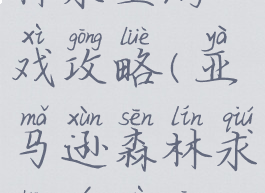 xì gōng lüè yà
戏攻略(亚
mǎ xùn sēn lín qiú
马逊森林求